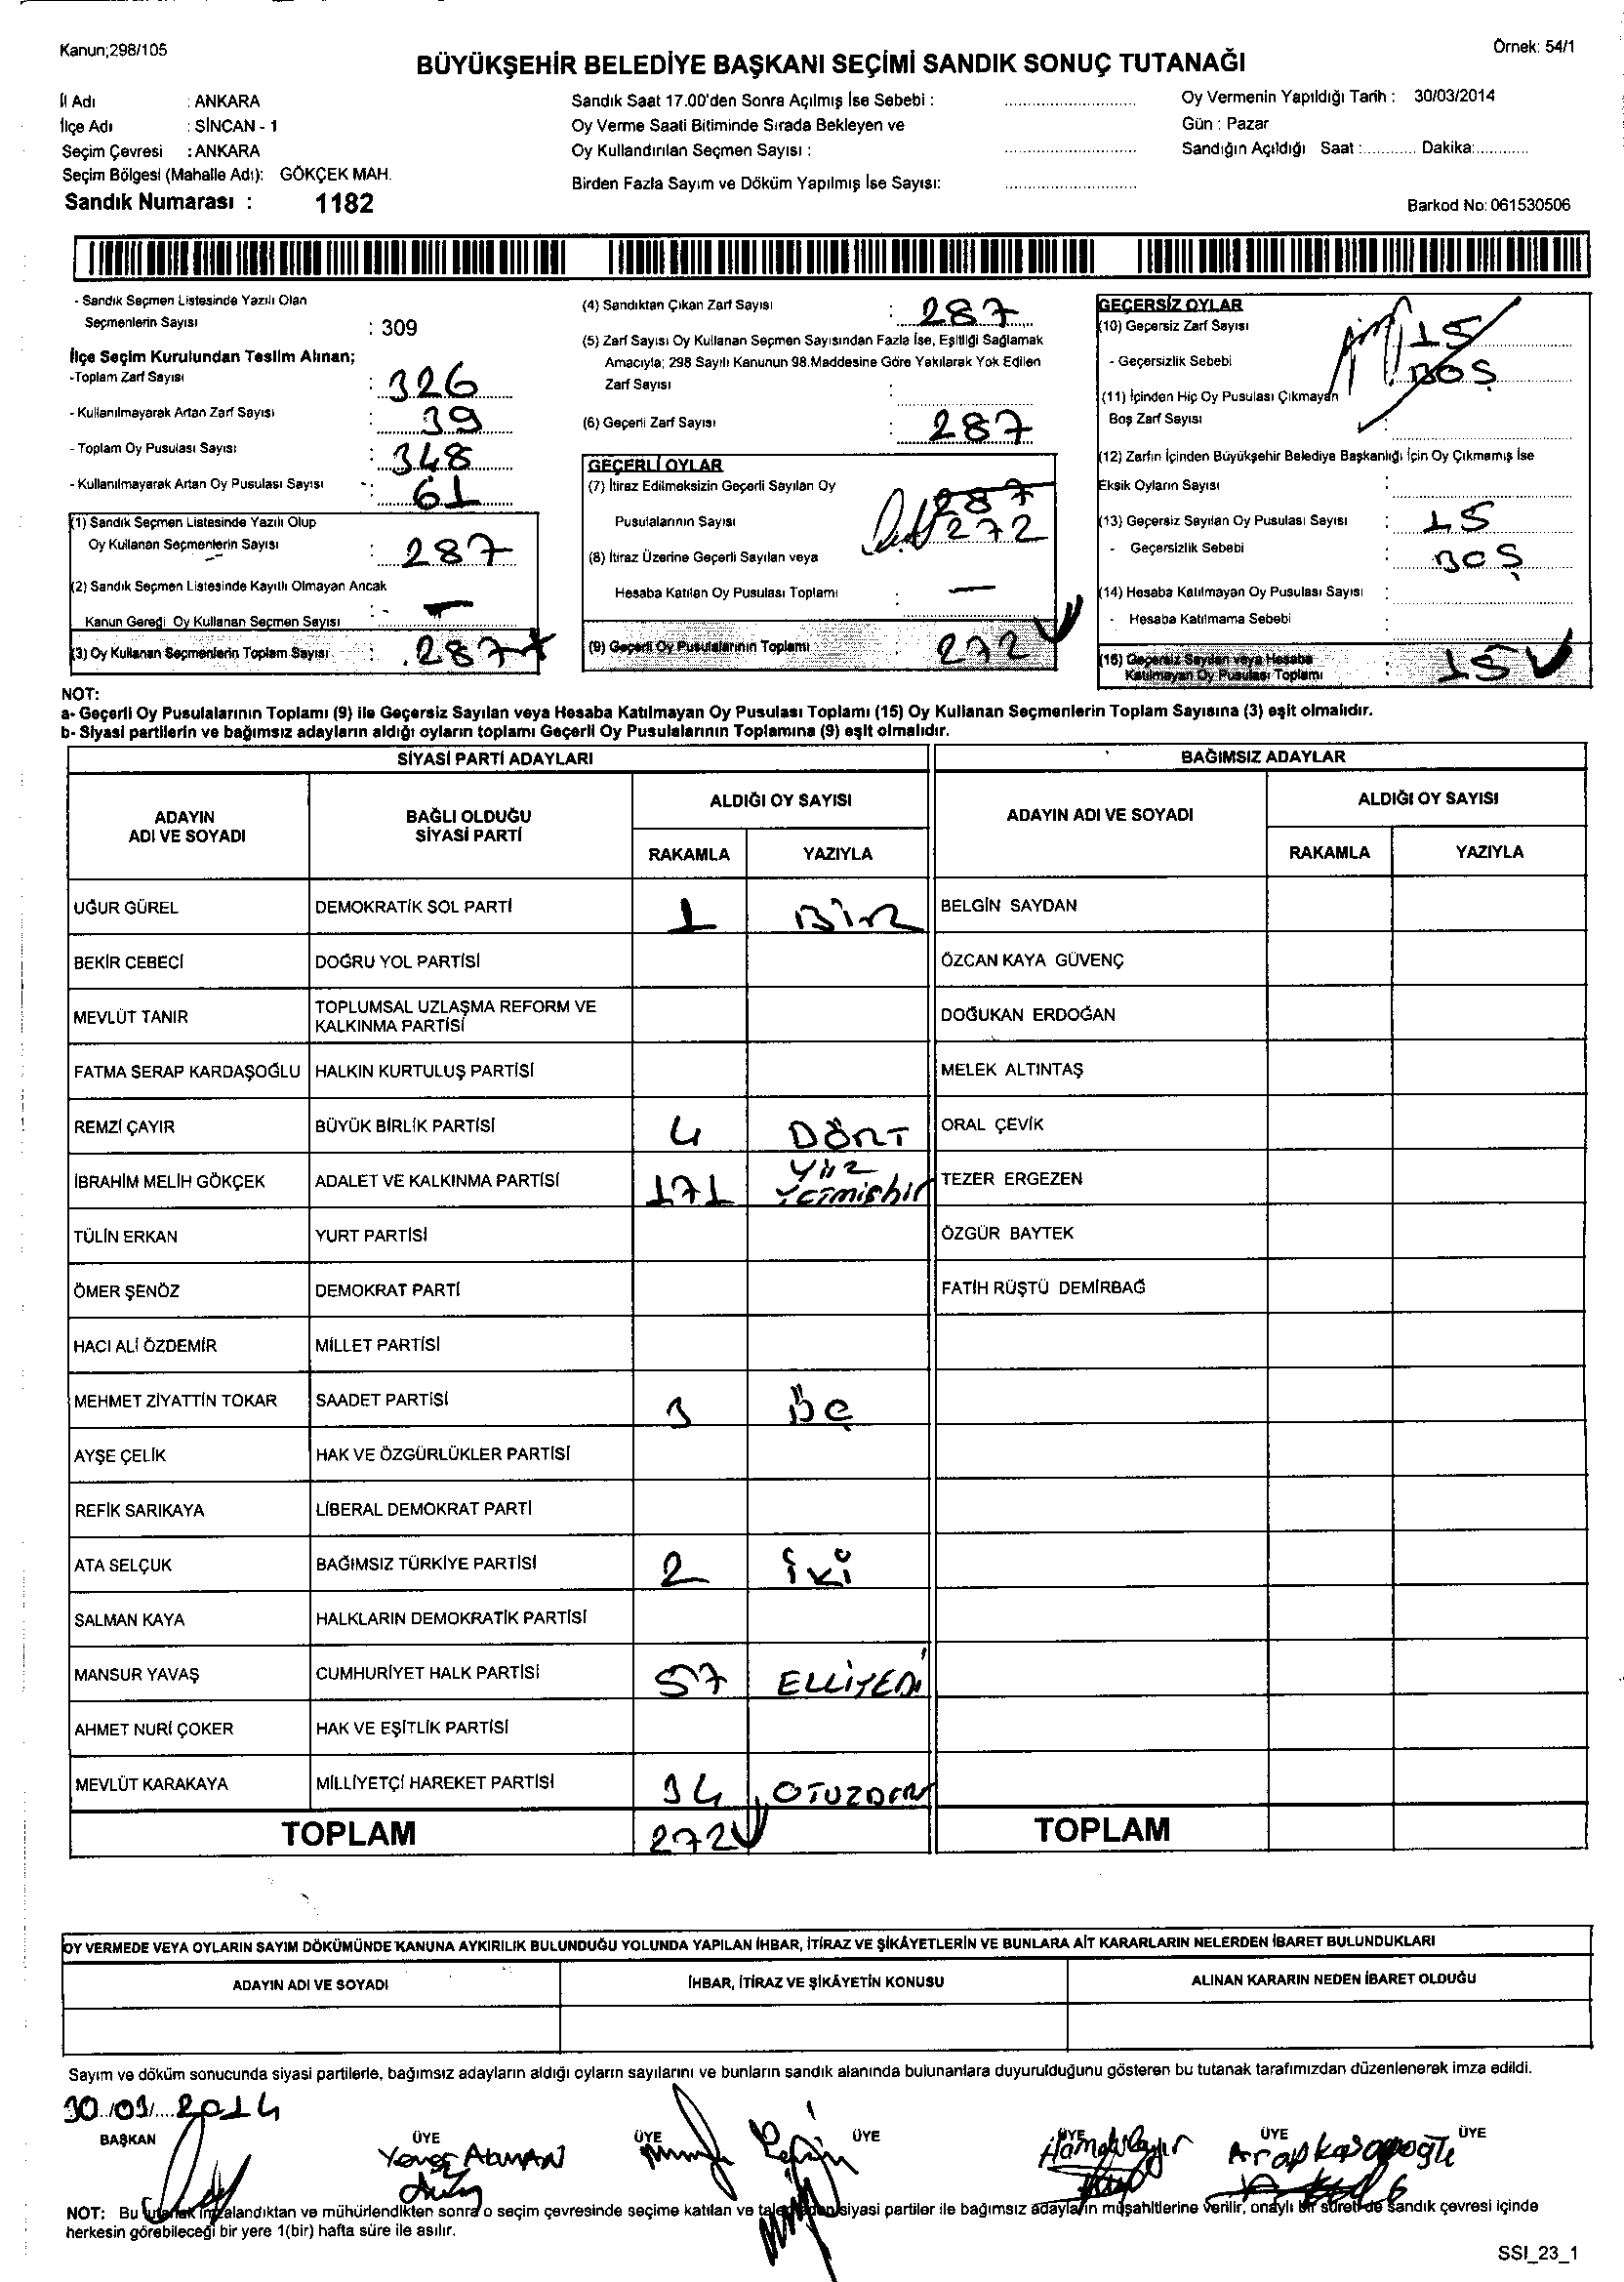 Kanun;298/105
Örnek: 54/1
BÜYÜKŞEHİR BELEDİYE BAŞKANI SEÇİMİ SANDIK SONUÇ TUTANAĞI
İl Adı : ANKARA
İlçe Adı : SİNCAN - 1
Seçim Çevresi : ANKARA
Seçim Bölgesi (Mahalle Adı): GÖKÇEK MAH.
Sandık Numarası : 1182
Sandık Saat 17.00'den Sonra Açılmış İse Sebebi :
Oy Verme Saati Bitiminde Sırada Bekleyen ve
Oy Kullandırılan Seçmen Sayısı :
Birden Fazla Sayım ve Döküm Yapılmış İse Sayısı:
Oy Vermenin Yapıldığı Tarih : 30/03/2014
Gün : Pazar
Sandığın Açıldığı Saat :............ Dakika:............
Barkod No: 061530506
- Sandık Seçmen Listesinde Yazılı Olan
Seçmenlerin Sayısı : 309
İlçe Seçim Kurulundan Teslim Alınan;
-Toplam Zarf Sayısı : 326
- Kullanılmayarak Artan Zarf Sayısı : 39
- Toplam Oy Pusulası Sayısı : 348
- Kullanılmayarak Artan Oy Pusulası Sayısı : 61
(1) Sandık Seçmen Listesinde Yazılı Olup
Oy Kullanan Seçmenlerin Sayısı : 287
(2) Sandık Seçmen Listesinde Kayıtlı Olmayan Ancak
Kanun Gereği Oy Kullanan Seçmen Sayısı : —
(3) Oy Kullanan Seçmenlerin Toplam Sayısı : 287
(4) Sandıktan Çıkan Zarf Sayısı : 287
(5) Zarf Sayısı Oy Kullanan Seçmen Sayısından Fazla İse, Eşitliği Sağlamak
Amacıyla; 298 Sayılı Kanunun 98.Maddesine Göre Yakılarak Yok Edilen
Zarf Sayısı :
(6) Geçerli Zarf Sayısı : 287
GEÇERLİ OYLAR
(7) İtiraz Edilmeksizin Geçerli Sayılan Oy 287
Pusulalarının Sayısı 272
(8) İtiraz Üzerine Geçerli Sayılan veya
Hesaba Katılan Oy Pusulası Toplamı : —
(9) Geçerli Oy Pusulalarının Toplamı : 272
GEÇERSİZ OYLAR
(10) Geçersiz Zarf Sayısı 15
- Geçersizlik Sebebi BOŞ
(11) İçinden Hiç Oy Pusulası Çıkmayan
Boş Zarf Sayısı :
(12) Zarfın İçinden Büyükşehir Belediye Başkanlığı İçin Oy Çıkmamış İse
Eksik Oyların Sayısı :
(13) Geçersiz Sayılan Oy Pusulası Sayısı : 15
- Geçersizlik Sebebi : BOŞ
(14) Hesaba Katılmayan Oy Pusulası Sayısı :
- Hesaba Katılmama Sebebi :
(15) Geçersiz Sayılan veya Hesaba
Katılmayan Oy Pusulası Toplamı : 15
NOT:
a- Geçerli Oy Pusulalarının Toplamı (9) ile Geçersiz Sayılan veya Hesaba Katılmayan Oy Pusulası Toplamı (15) Oy Kullanan Seçmenlerin Toplam Sayısına (3) eşit olmalıdır.
b- Siyasi partilerin ve bağımsız adayların aldığı oyların toplamı Geçerli Oy Pusulalarının Toplamına (9) eşit olmalıdır.
SİYASİ PARTİ ADAYLARI
ADAYIN ADI VE SOYADI
BAĞLI OLDUĞU SİYASİ PARTİ
ALDIĞI OY SAYISI
RAKAMLA YAZIYLA
UĞUR GÜREL DEMOKRATİK SOL PARTİ 1 BİR
BEKİR CEBECİ DOĞRU YOL PARTİSİ
MEVLÜT TANIR TOPLUMSAL UZLAŞMA REFORM VE KALKINMA PARTİSİ
FATMA SERAP KARDAŞOĞLU HALKIN KURTULUŞ PARTİSİ
REMZİ ÇAYIR BÜYÜK BİRLİK PARTİSİ 4 DÖRT
İBRAHİM MELİH GÖKÇEK ADALET VE KALKINMA PARTİSİ 171 Yüz Yetmişbir
TÜLİN ERKAN YURT PARTİSİ
ÖMER ŞENÖZ DEMOKRAT PARTİ
HACI ALİ ÖZDEMİR MİLLET PARTİSİ
MEHMET ZİYATTİN TOKAR SAADET PARTİSİ 3 Üç
AYŞE ÇELİK HAK VE ÖZGÜRLÜKLER PARTİSİ
REFİK SARIKAYA LİBERAL DEMOKRAT PARTİ
ATA SELÇUK BAĞIMSIZ TÜRKİYE PARTİSİ 2 İKİ
SALMAN KAYA HALKLARIN DEMOKRATİK PARTİSİ
MANSUR YAVAŞ CUMHURİYET HALK PARTİSİ 57 ELLİYEDİ
AHMET NURİ ÇOKER HAK VE EŞİTLİK PARTİSİ
MEVLÜT KARAKAYA MİLLİYETÇİ HAREKET PARTİSİ 34
TOPLAM 272
BAĞIMSIZ ADAYLAR
ADAYIN ADI VE SOYADI
ALDIĞI OY SAYISI
RAKAMLA YAZIYLA
BELGİN SAYDAN
ÖZCAN KAYA GÜVENÇ
DOĞUKAN ERDOĞAN
MELEK ALTINTAŞ
ORAL ÇEVİK
TEZER ERGEZEN
ÖZGÜR BAYTEK
FATİH RÜŞTÜ DEMİRBAĞ
TOPLAM
OY VERMEDE VEYA OYLARIN SAYIM DÖKÜMÜNDE KANUNA AYKIRILIK BULUNDUĞU YOLUNDA YAPILAN İHBAR, İTİRAZ VE ŞİKÂYETLERİN VE BUNLARA AİT KARARLARIN NELERDEN İBARET BULUNDUKLARI
ADAYIN ADI VE SOYADI İHBAR, İTİRAZ VE ŞİKÂYETİN KONUSU ALINAN KARARIN NEDEN İBARET OLDUĞU
Sayım ve döküm sonucunda siyasi partilerle, bağımsız adayların aldığı oyların sayılarını ve bunların sandık alanında bulunanlara duyurulduğunu gösteren bu tutanak tarafımızdan düzenlenerek imza edildi.
30/03/2014
BAŞKAN ÜYE ÜYE ÜYE ÜYE ÜYE ÜYE
NOT: Bu tutanak imzalandıktan ve mühürlendikten sonra o seçim çevresinde seçime katılan ve talep eden siyasi partiler ile bağımsız adayların müşahitlerine verilir, onaylı bir sureti de sandık çevresi içinde
herkesin görebileceği bir yere 1(bir) hafta süre ile asılır.
SSI_23_1